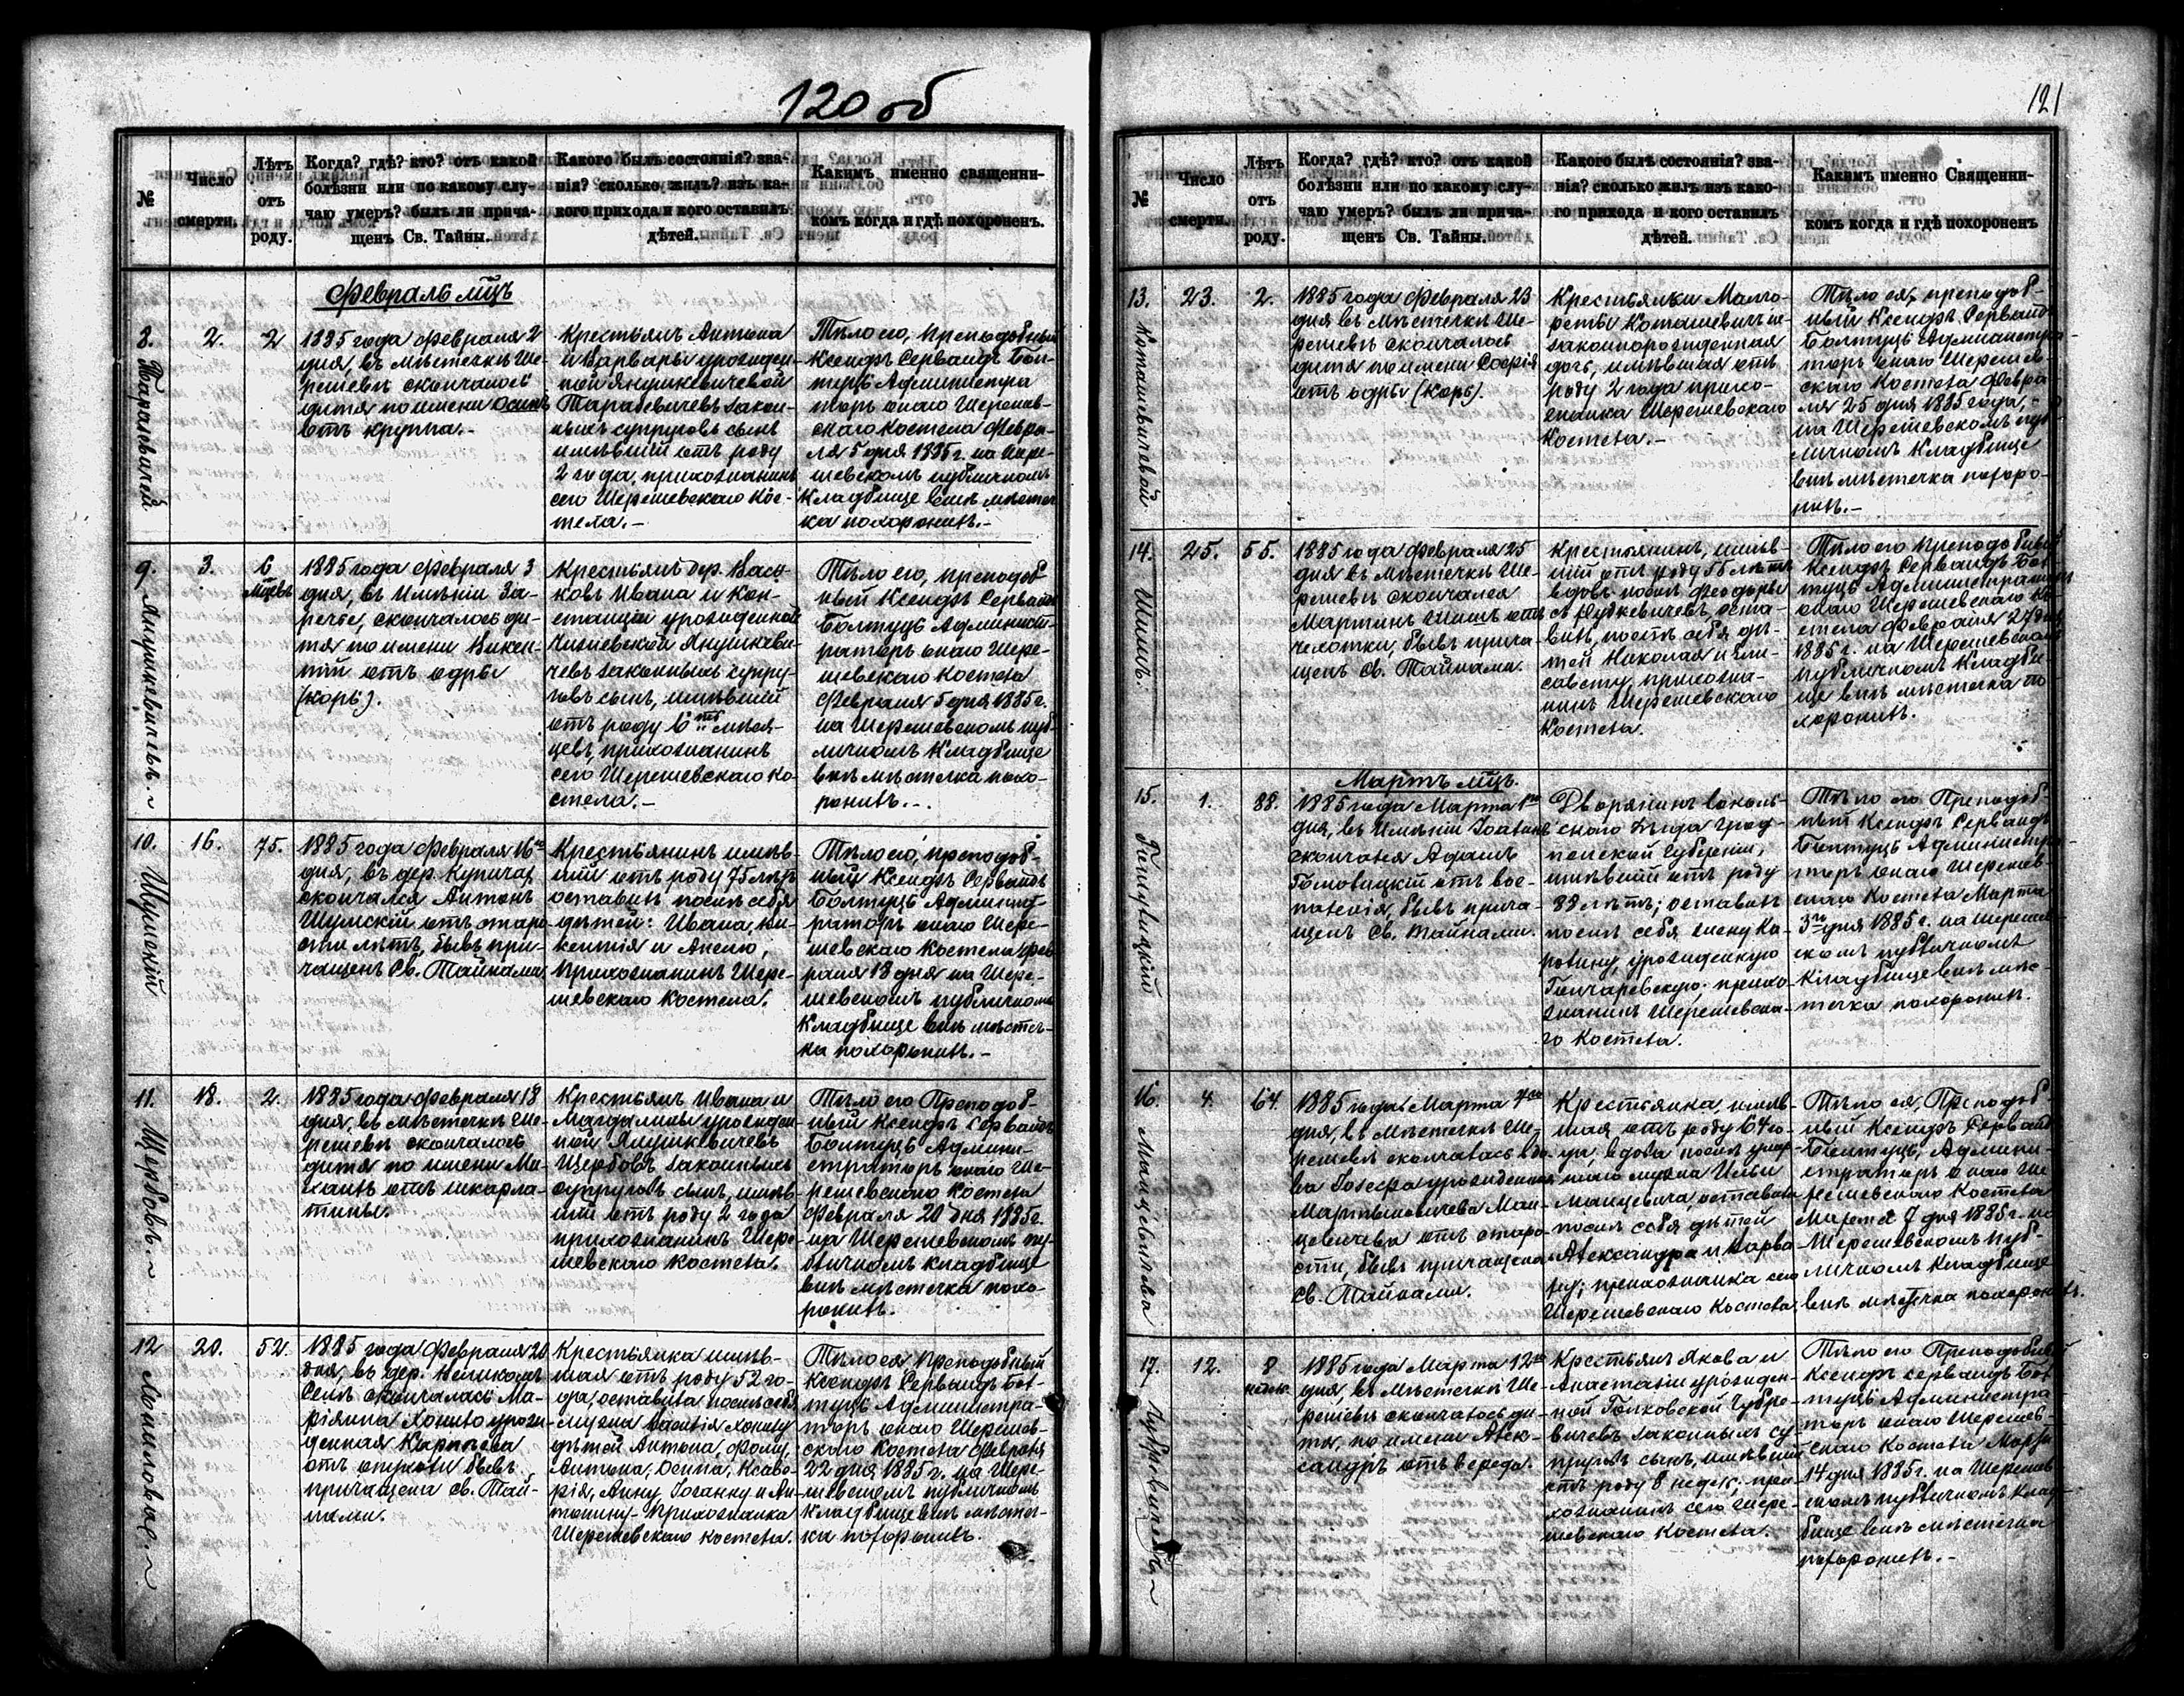 120 об
№
Число
смерти.
Лѣтъ
отъ
роду.
Когда? гдѣ? кто? отъ какой
болѣзни или по какому слу-
чаю умеръ? былъ ли прича-
щенъ Св. Тайны.
Какого былъ состоянія? зва-
нія? сколько жилъ? изъ ка-
кого прихода и кого оставилъ
дѣтей.
Какимъ именно священни-
комъ когда и гдѣ похороненъ.
Февраль мцъ
8.
2.
2
1885 года Февраля 2
дня, въ мѣстечкѣ Ше-
решевѣ скончалось
дитя по имени Осипъ
отъ круппа.-
Крестьянъ Антона
и Варвары урожден-
ной Янушкевичевой
Тарасевичевъ закон-
ныхъ супруговъ сынъ
имѣвшій отъ роду
2 года, прихожанинъ
сего Шерешевскаго Кос-
тела.-
Тѣло его, преподобный
Ксендзъ Сервандъ Бол-
туць Администра
торъ онаго Шерешев-
скаго Костела Февра-
ля 5 дня 1885 г. на Шере-
шевскомъ публичномъ
Кладбище внѣ мѣстеч
ка похоронилъ.-
9.
Янушкевичевъ.
3.
6
мцевъ
1885 года Февраля 3
дня, въ Имѣніи За-
речье, скончалось ди-
тя по имени Викен-
тій отъ одры
(корь).
Ивана и Кон-
станціи урожденной
Янушкеви-
чевъ законныхъ супру-
говъ сынъ, имѣвшій
отъ роду 6 мѣся-
цевъ, прихожанинъ
сего Шерешевскаго Ко-
стела.-
Тѣло его, преподоб
ный Ксендзъ Сервандъ
Болтуць Админист-
раторъ онаго Шере-
шевскаго Костела
Февраля 5 дня 1885 г.
на Шерешевскомъ пуб-
личномъ Кладбище
внѣ мѣстечка похо-
ронилъ.-
10.
Шумскій
16.
75.
1885 года Февраля 16го
дня, въ дер. Купичахъ
скончался Антонъ
Шумскій отъ старо
сти лѣтъ, бывъ при-
чащенъ Св. Тайнами.
Крестьянинъ имѣв-
шій отъ роду 75 лѣтъ
оставилъ послѣ себя
дѣтей: Ивана, Ви-
кентія и Анелю,
Прихожанинъ Шере-
шевскаго Костела.
Тѣло его, преподоб-
ный Ксендзъ Сервандъ
Болтуць Админист-
раторъ онаго Шере-
шевскаго Костела Фев
раля 18 дня на Шере-
шевскомъ публичномъ
Кладбище внѣ мѣстеч-
ка похоронилъ.-
11.
Щербовъ.
18.
2.
1885 года Февраля 18
дня, въ мѣстечкѣ Ше-
решевѣ скончалось
дитя по имени Ми-
хаилъ отъ шкарла-
тины.
Крестьянъ Ивана и
Магдалины урожден
ной Янушкевичевъ
Щербовъ законныхъ
супруговъ сынъ, имѣв
шій отъ роду 2 года
прихожанинъ Шере-
шевскаго Костела.
Тѣло его Преподоб-
ный Ксендзъ Сервандъ
Болтуць Админи-
страторъ онаго Ше-
решевскаго Костела
Февраля 20 дня 1885 г.
на Шерешевскомъ пу-
бличномъ кладбище
внѣ мѣстечка похо-
ронилъ.
12
20.
52.
1885 года Февраля 20
дня, въ дер. Великомъ
Селѣ скончалась Ма-
ріянна урож-
денная
отъ опухоли бывъ
причащена св. Тай-
нами.
Крестьянка имѣв-
шая отъ роду 52 го-
да, оставила послѣ себя
мужа
дѣтей Антона, Фому,
Антона, Осипа, Ксаве-
рія, Анну, и Ан-
тонину - Прихожанка
Шерешевскаго Костела.
Тѣло ея Преподобный
Ксендзъ Сервандъ Бол-
туць Администра-
торъ онаго Шерешев-
скаго Костела Февраля
22 дня 1885 г. на Шере-
шевскомъ публичномъ
Кладбище внѣ мѣстеч-
ка похоронилъ.
121
№
Число
смерти.
Лѣтъ
отъ
роду.
Когда? гдѣ? кто? отъ какой
болѣзни или по какому слу-
чаю умеръ? былъ ли прича-
щенъ Св. Тайны.
Какого былъ состоянія? зва-
нія? сколько жилъ изъ како-
го прихода и кого оставилъ
дѣтей.
Какимъ именно Священни-
комъ когда и гдѣ похороненъ
13.
Коташевичевой
23.
2.
1885 года Февраля 23
дня въ мѣстечкѣ Ше-
решевѣ скончалось
дитя по имени Софія
отъ одры (корь).
Крестьянки Малго-
реты Коташевичъ не-
законнорожденная
дочь, имѣвшая отъ
роду 2 года прихо-
жанка Шерешевскаго
Костела.-
Тѣло ея, преподоб-
ный Ксендзъ Сервандъ
Болтуць Администра
торъ онаго Шерешев-
скаго Костела Февра
ля 25 дня 1885 года,
на Шерешевскомъ пуб
личномъ Кладбище
внѣ мѣстечка похоро-
нилъ.-
14.
Шишъ.
25.
55.
1885 года Февраля 25
дня въ мѣстечкѣ Ше-
решевѣ скончался
Мартинъ Шишъ отъ
чехотки, бывъ прича
щенъ Св. Тайнами.
Крестьянинъ, имѣв-
шій отъ роду 55 лѣтъ
вдовъ послѣ Феодоры
съ Дудкевичевъ, оста-
вилъ, послѣ себя дѣ-
тей Николая и Ели-
савету, прихожа-
нинъ Шерешевскаго
Костела.
Тѣло его Преподобный
Ксендзъ Сервандъ Бол
туць Администраторъ
онаго Шерешевскаго Ко
стела Февраля 27 дня
1885 г. на Шерешевскомъ
публичномъ Кладби-
ще внѣ мѣстечка по-
хоронилъ.
Мартъ мцъ.
15.
1.
88.
1885 года Марта 1го
дня, въ Имѣніи
скончался Адамъ
отъ вос-
паленія, бывъ прича-
щенъ Св. Тайнами.
Дворянинъ
Грод-
ненской Губерніи,
имѣвшій отъ роду
88 лѣтъ; оставилъ
послѣ себя жену Ка
ролину, урожденную
Гончаревскую; прихо-
жанинъ Шерешевска-
го Костела.
Тѣло его Преподоб-
ный Ксендзъ Сервандъ
Болтуць Администра-
торъ онаго Шерешев-
скаго Костела Марта
3го дня 1885 г. на Шерешев-
скомъ публичномъ
Кладбище внѣ мѣс-
течка похоронилъ.
16.
Манцевичева
4.
64.
1885 года Марта 4го
дня, въ мѣстечкѣ Ше-
решевѣ скончалась вдо-
ва Іозефа урожденная
Мартыновичева Ман-
цевичева отъ старо-
сти, бывъ причащена
Св. Тайнами.
Крестьянка, имѣв-
шая отъ роду 64 го-
да, вдова послѣ умер-
шаго мужа Ильи
Манцевича, оставила
послѣ себя дѣтей
Александра и Варва-
ру; прихожанка сего
Шерешевскаго Костела.
Тѣло ея, Преподоб-
ный Ксендзъ Сервандъ
Болтуць, Админи-
страторъ онаго Ше
решевскаго Костела
Марта 7 дня 1885 г. на
Шерешевскомъ пуб-
личномъ Кладбище
внѣ мѣстечка похоронилъ.
17.
12.
8
недѣль
1885 года Марта 12го
дня, въ мѣстечкѣ Ше-
решевѣ скончалось ди-
тя, по имени Алек-
сандръ отъ вереда.
Крестьянъ Якова и
Анастасіи урожден-
ной Губре-
вичевъ законныхъ су-
пруговъ сынъ, имѣвшій
отъ роду 8 недѣль; при-
хожанинъ сего Шере-
шевскаго Костела.
Тѣло его Преподобный
Ксендзъ Сервандъ Бол
туць Администра-
торъ онаго Шерешев-
скаго Костела Марта
14 дня 1885 г. на Шерешев-
скомъ публичномъ Клад-
бище внѣ мѣстечка
похоронилъ.-